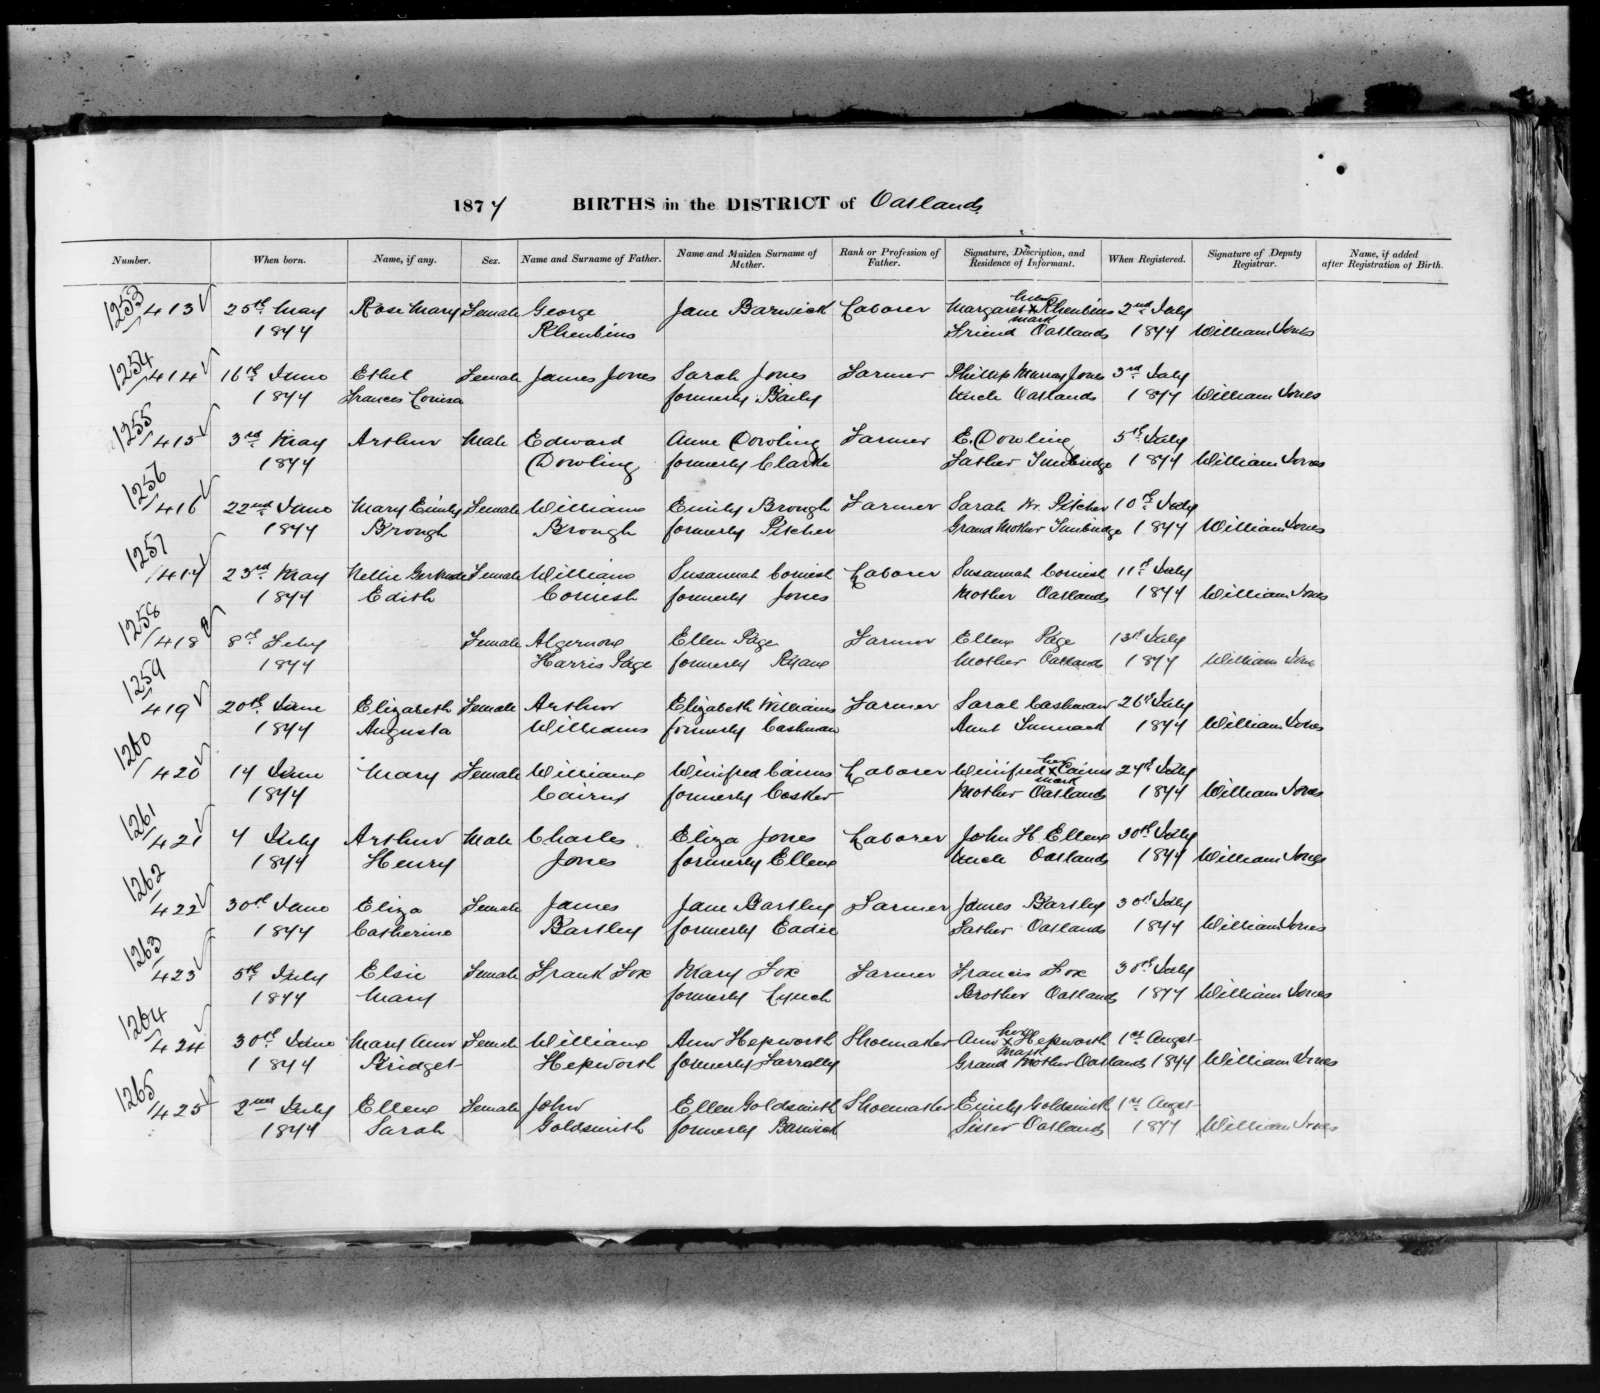 1877 BIRTHS in the DISTRICT of Oatlands
Number. When born. Name, if any. Sex. Name and Surname of Father. Name and Maiden Surname of Mother. Rank or Profession of Father. Signature, Description, and Residence of Informant. When Registered. Signature of Deputy Registrar. Name, if added after Registration of Birth.
1253
413 25th May Rose Mary Female George Jane Barwick Laborer Margaret her x mark Rheubins 2nd July
1877 Rheubins Friend Oatlands 1877 William Jones
1254
414 16th June Ethel Female James Jones Sarah Jones Farmer Phillip Murray Jones 3rd July
1877 Frances Louisa formerly Baily Uncle Oatlands 1877 William Jones
1255
415 3rd May Arthur Male Edward Anne Dowling Farmer E. Dowling 5th July
1877 Dowling formerly Clarke Father Tunbridge 1877 William Jones
1256
416 22nd June Mary Emily Female William Emily Brough Farmer Sarah Pitcher 10th July
1877 Brough Brough formerly Pitcher Grand Mother Tunbridge 1877 William Jones
1257
417 23rd May Nellie Gertrude Female William Susannah Cornish Laborer Susannah Cornish 11th July
1877 Edith Cornish formerly Jones Mother Oatlands 1877 William Jones
1258
418 8th Feby Female Algernon Ellen Page Farmer Ellen Page 13th July
1877 Harris Page formerly Mother Oatlands 1877 William Jones
1259
419 20th June Elizabeth Female Arthur Elizabeth Williams Farmer Sarah Cashman 26th July
1877 Augusta Williams formerly Cashman Aunt Tunnack 1877 William Jones
1260
420 17 June Mary Female William Winifred Cairns Laborer Winifred her x mark Cairns 27th July
1877 Cairns formerly Cosker Mother Oatlands 1877 William Jones
1261
421 7 July Arthur Male Charles Eliza Jones Laborer John H. Ellen 30th July
1877 Henry Jones formerly Ellen Uncle Oatlands 1877 William Jones
1262
422 30th June Eliza Female James Jane Bartley Farmer James Bartley 30th July
1877 Catherine Bartley formerly Eadie Father Oatlands 1877 William Jones
1263
423 5th July Elsie Female Frank Fox Mary Fox Farmer Francis Fox 30th July
1877 Mary formerly Lynch Brother Oatlands 1877 William Jones
1264
424 30th June Mary Ann Female William Ann Hepworth Shoemaker Ann her x mark Hepworth 1st Augst
1877 Bridget Hepworth formerly Farrally Grand Mother Oatlands 1877 William Jones
1265
425 2nd July Ellen Female John Ellen Goldsmith Shoemaker Emily Goldsmith 1st Augst
1877 Sarah Goldsmith formerly Barwick Sister Oatlands 1877 William Jones